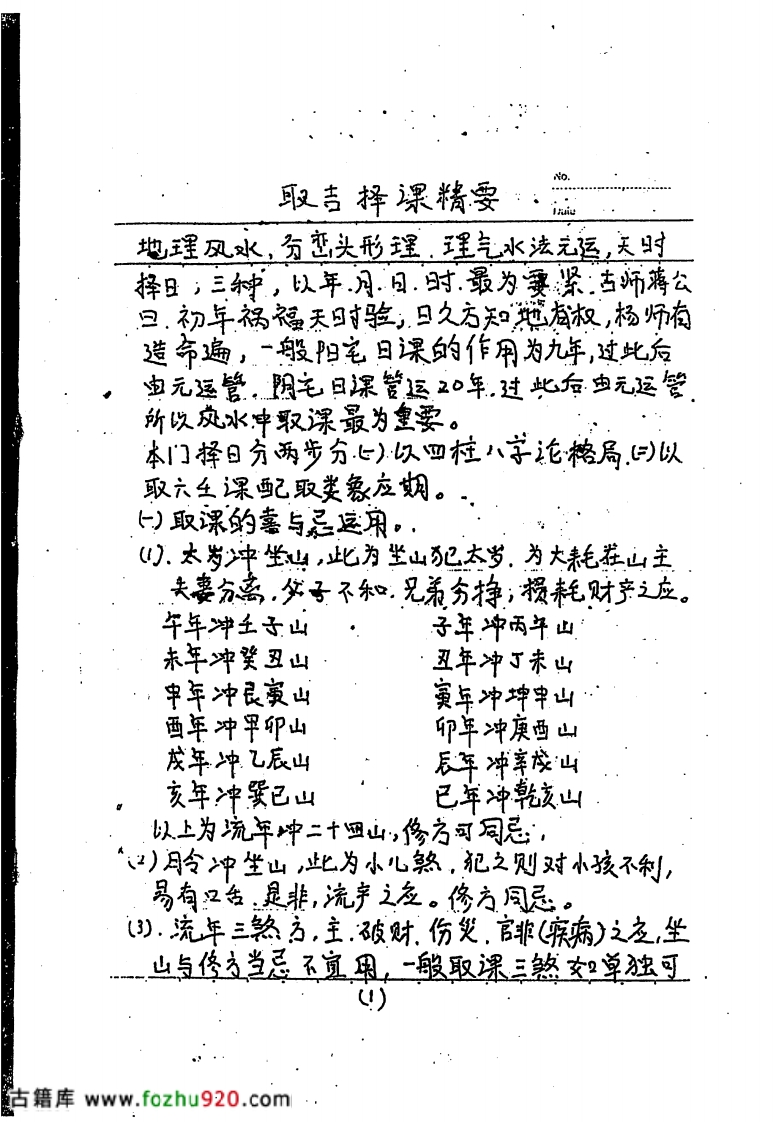 No.
Date
取吉择课精要
地理风水，分峦头形理，理气水法元运，天时
择日；三种，以年.月.日.时.最为要紧.古师蒋公
曰.初年祸福天时验，日久方知地有权，杨师有
造命遍，一般阳宅日课的作用为九年，过此后
由元运管.阴宅日课管运20年.过此后由元运管.
所以风水中取课最为重要。
本门择日分两步分.(一)以四柱八字论格局.(二)以
取六壬课配取类象应期。
(一)取课的喜与忌运用。
(1).太岁冲坐山，此为坐山犯太岁.为大耗在山主
夫妻分离.父子不和.兄弟分挣；损耗财产之应。
午年冲壬子山 子年冲丙午山
未年冲癸丑山 丑年冲丁未山
申年冲艮寅山 寅年冲坤申山
酉年冲甲卯山 卯年冲庚酉山
戌年冲乙辰山 辰年冲辛戌山
亥年冲巽巳山 巳年冲乾亥山
以上为流年冲二十四山，修方可同忌，
(2)月令冲坐山，此为小儿煞.犯之则对小孩不利，
易有口舌.是非，流产之应。修方同忌。
(3).流年三煞方，主.破财.伤灾.官非(疾病)之应，坐
山与修方当忌不宜用，一般取课三煞如单独可
(1)
古籍库 www.fozhu920.com